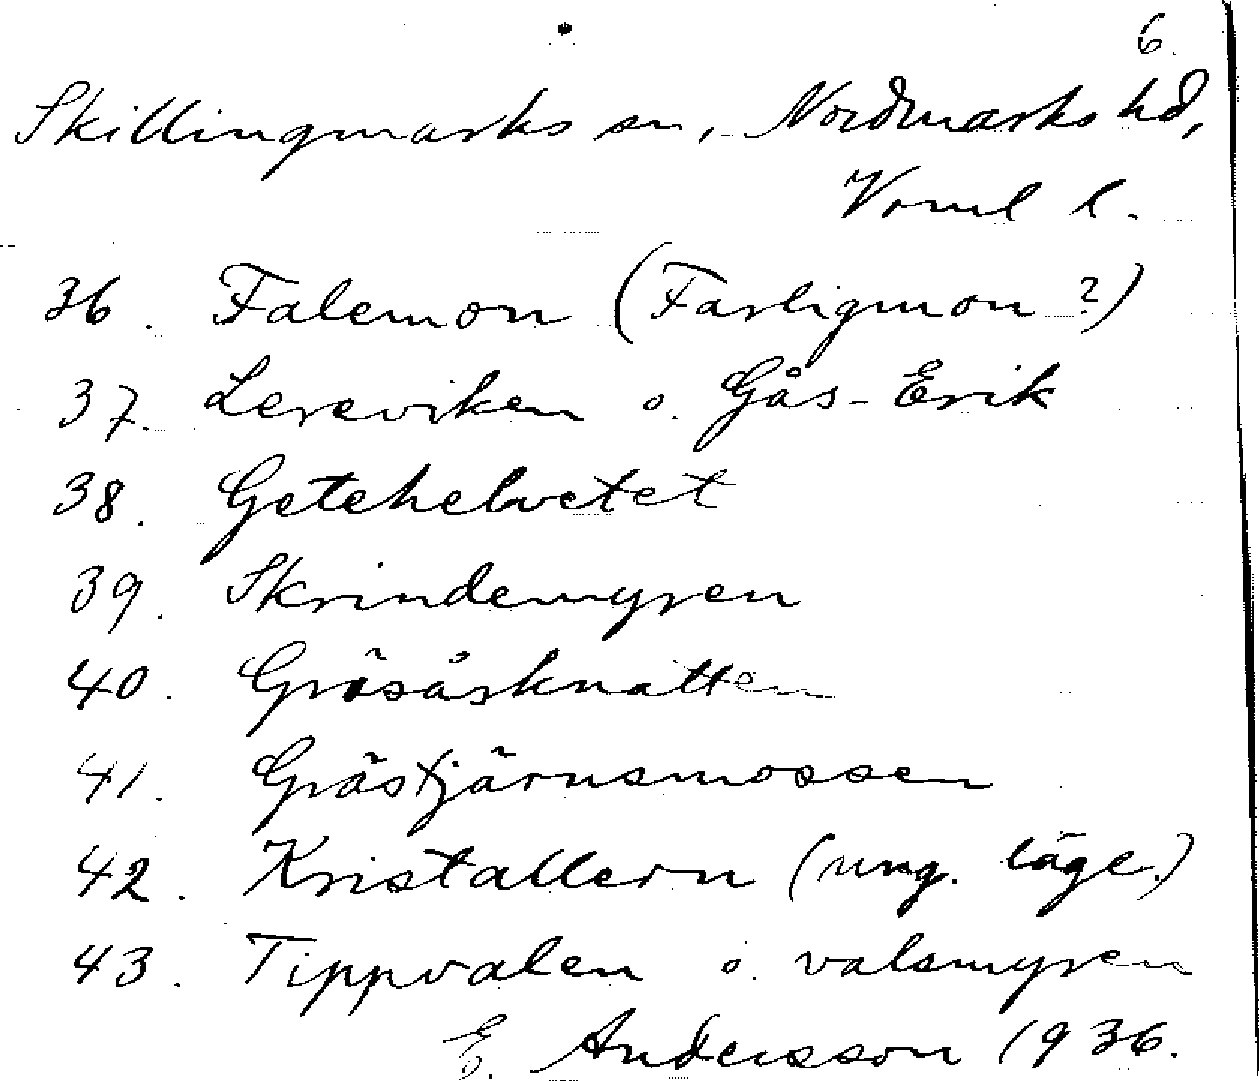 6.
Skillingmarks sn, Nordmarks hd,
Verml l.
36. Falemon (Farligmon?)
37. Lereviken o. Gås-Erik
38. Getehelvetet
39. Skrindemyren
40. Gräsåsknatten
41. Grästjärnsmossen
42. Kristallern (ung. läge.)
43. Tippvalen o. valsmyren
E. Andersson 1936.